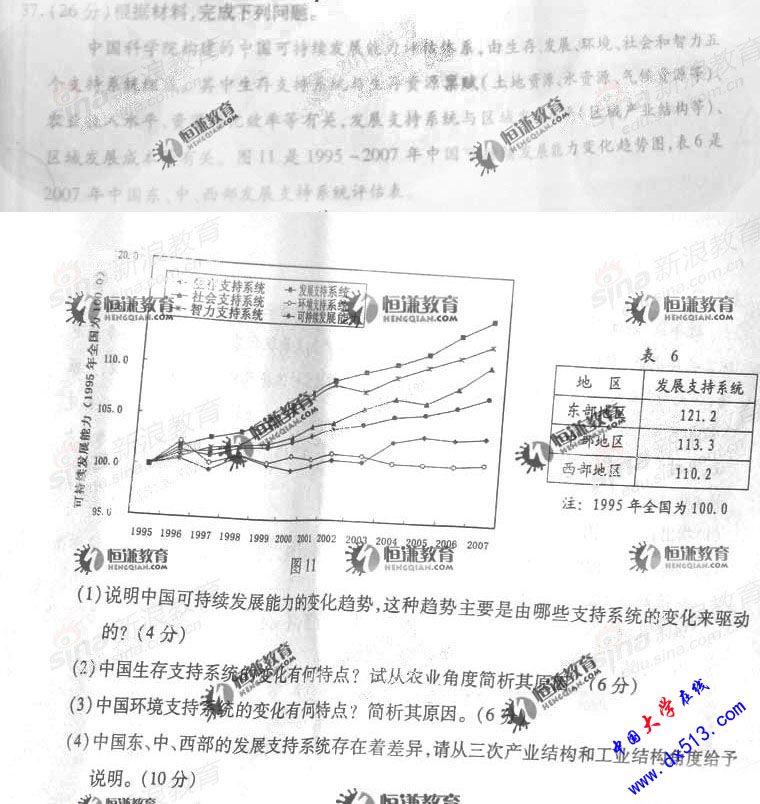 37.(26分)根据材料,完成下列问题。
中国科学院构建的中国可持续发展能力评估体系,由生存、发展、环境、社会和智力五
个支持系统组成。其中生存支持系统与生存资源禀赋(土地资源、水资源、气候资源等)、
农业投入水平、资 效率等有关,发展支持系统与区域 (区域产业结构等)、
区域发展成 有关。图11是1995~2007年中国 发展能力变化趋势图,表6是
2007年中国东、中、西部发展支持系统评估表。
可持续发展能力(1995年全国为100.0)
20.0
110.0
105.0
100.0
95.0
生存支持系统
发展支持系统
社会支持系统
环境支持系统
智力支持系统
可持续发展能
1995 1996 1997 1998 1999 2000 2001 2002 2003 2004 2005 2006 2007
图11
表 6
地 区 发展支持系统
东部地区 121.2
部地区 113.3
西部地区 110.2
注: 1995年全国为100.0
(1)说明中国可持续发展能力的变化趋势,这种趋势主要是由哪些支持系统的变化来驱动
的?(4分)
(2)中国生存支持系统的变化有何特点?试从农业角度简析其原因。(6分)
(3)中国环境支持系统的变化有何特点?简析其原因。(6
(4)中国东、中、西部的发展支持系统存在着差异,请从三次产业结构和工业结构角度给予
说明。(10分)
恒谦教育
HENGQIAN.COM
新浪教育
sina
edu.sina.com.cn
中国大学在线
www.dx513.com